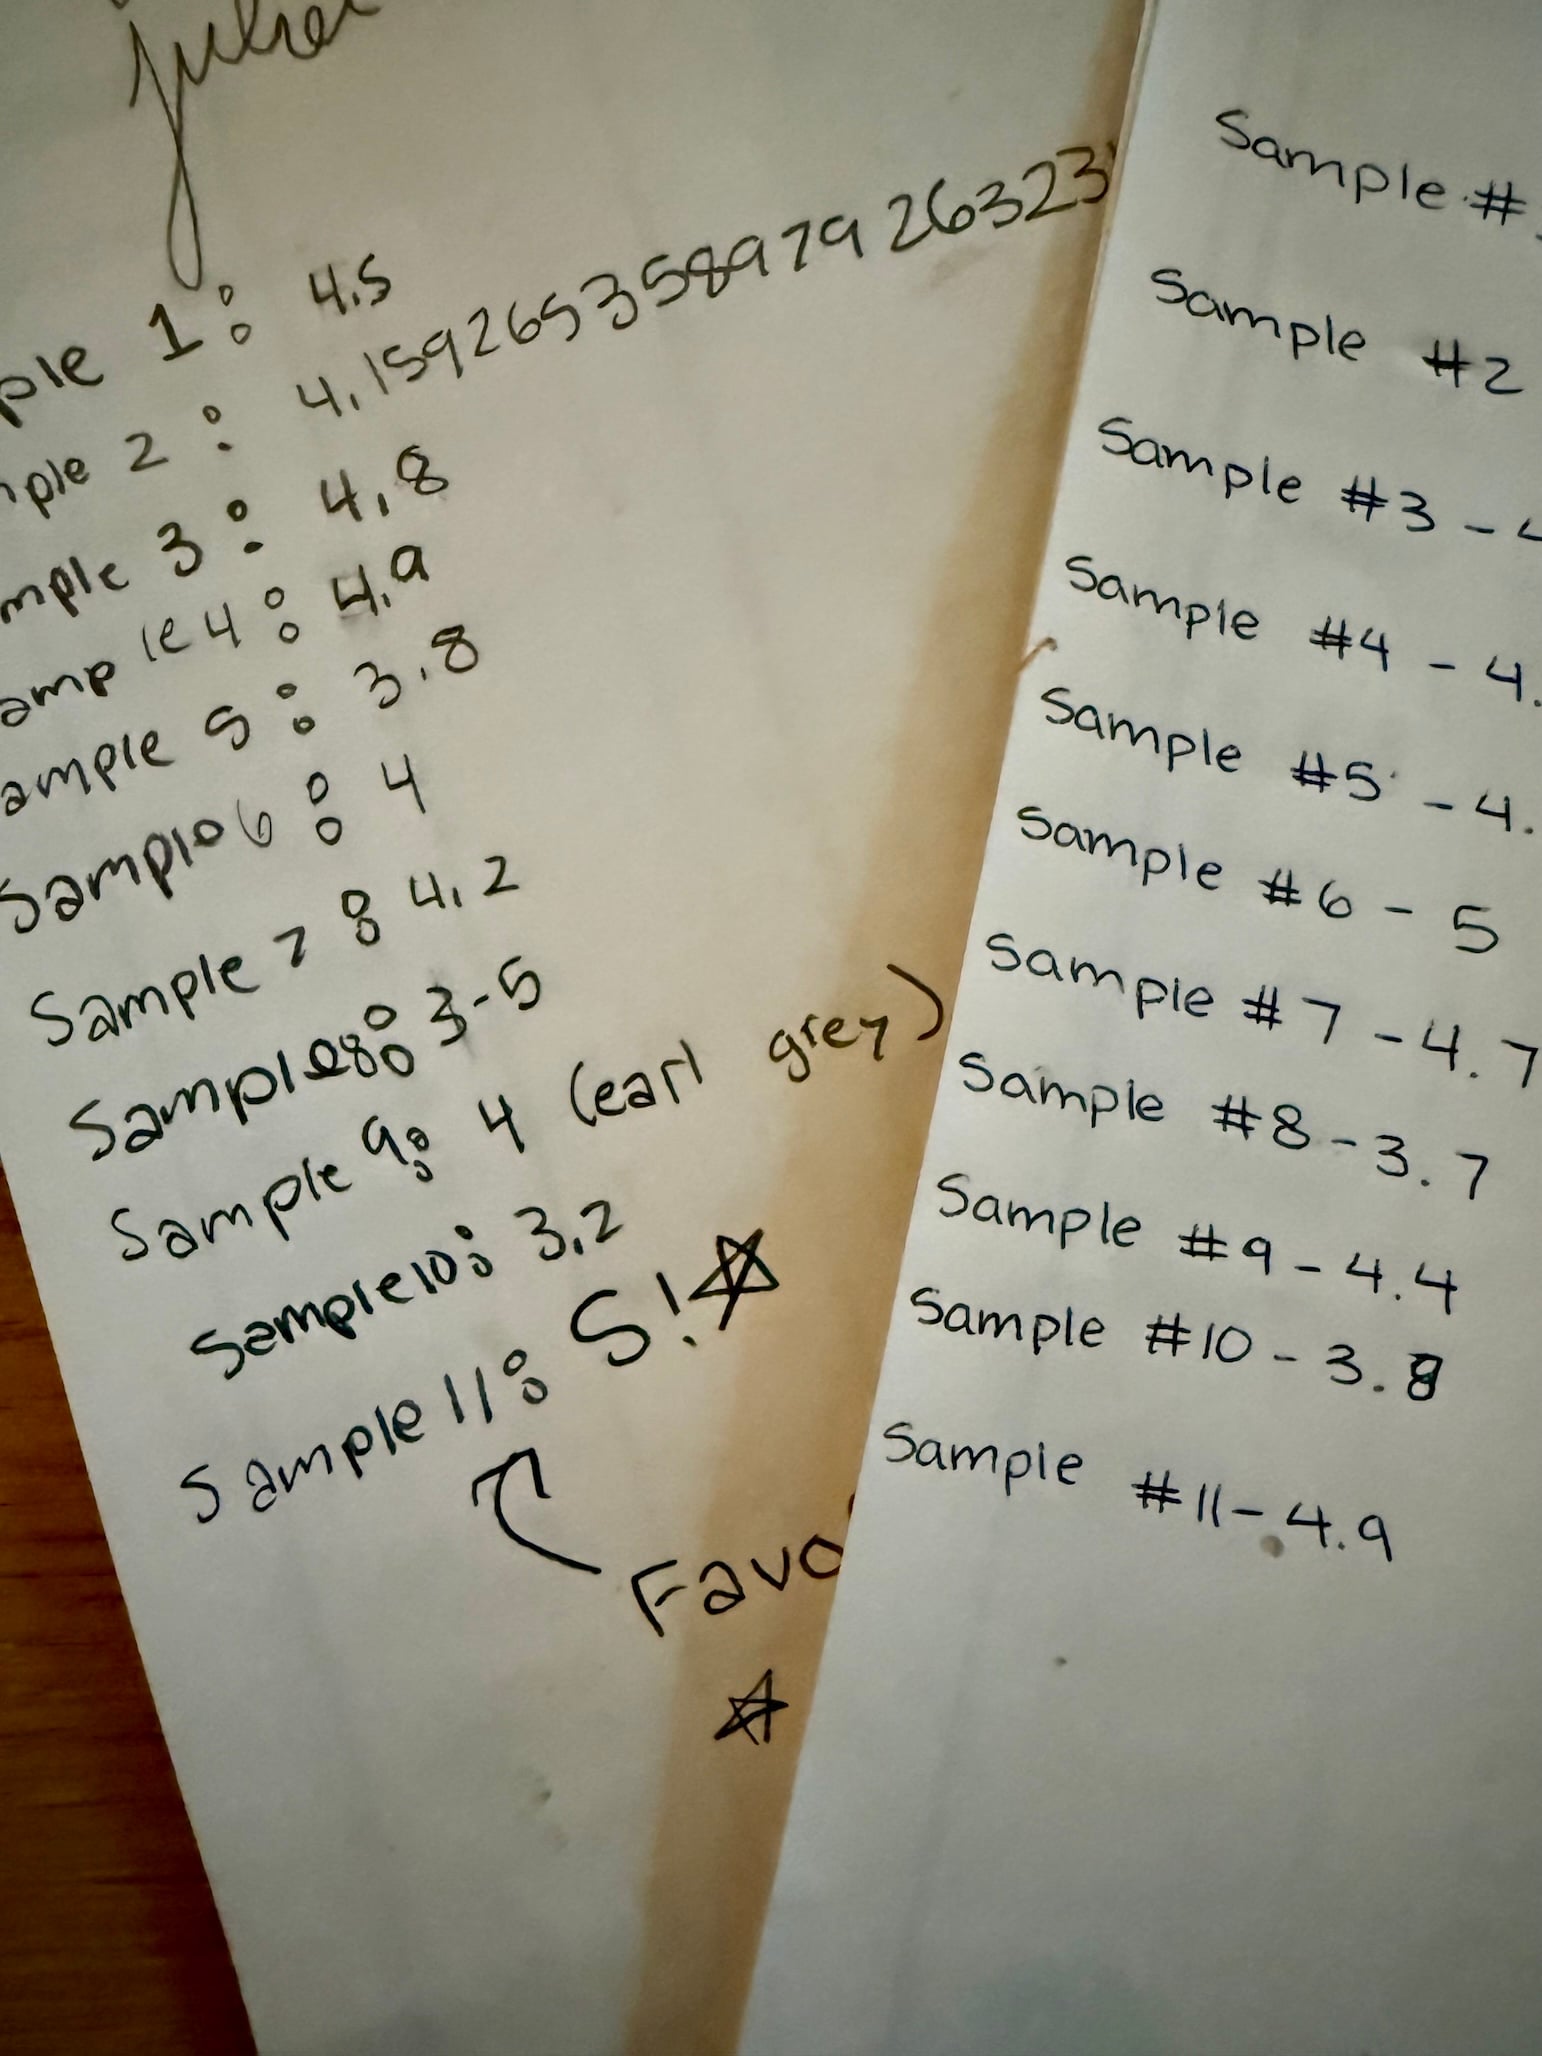 ple 1: 4.5
ple 2: 4.15926535897926323
mple 3: 4.8
ample 4: 4.9
ample 5: 3.8
Sample 6: 4
Sample 7: 4.2
Sample 8: 3-5
Sample 9: 4 (earl grey)
Sample 10: 3.2
Sample 11: 5!
Favo
Sample #
Sample #2
Sample #3 - 4
Sample #4 - 4.
Sample #5 - 4.
Sample #6 - 5
Sample #7 - 4.7
Sample #8 - 3.7
Sample #9 - 4.4
Sample #10 - 3.8
Sample #11 - 4.9